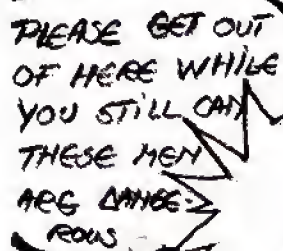 PLEASE GET OUT
OF HERE WHILE
YOU STILL CAN
THESE MEN
ARE DANGE-
ROUS